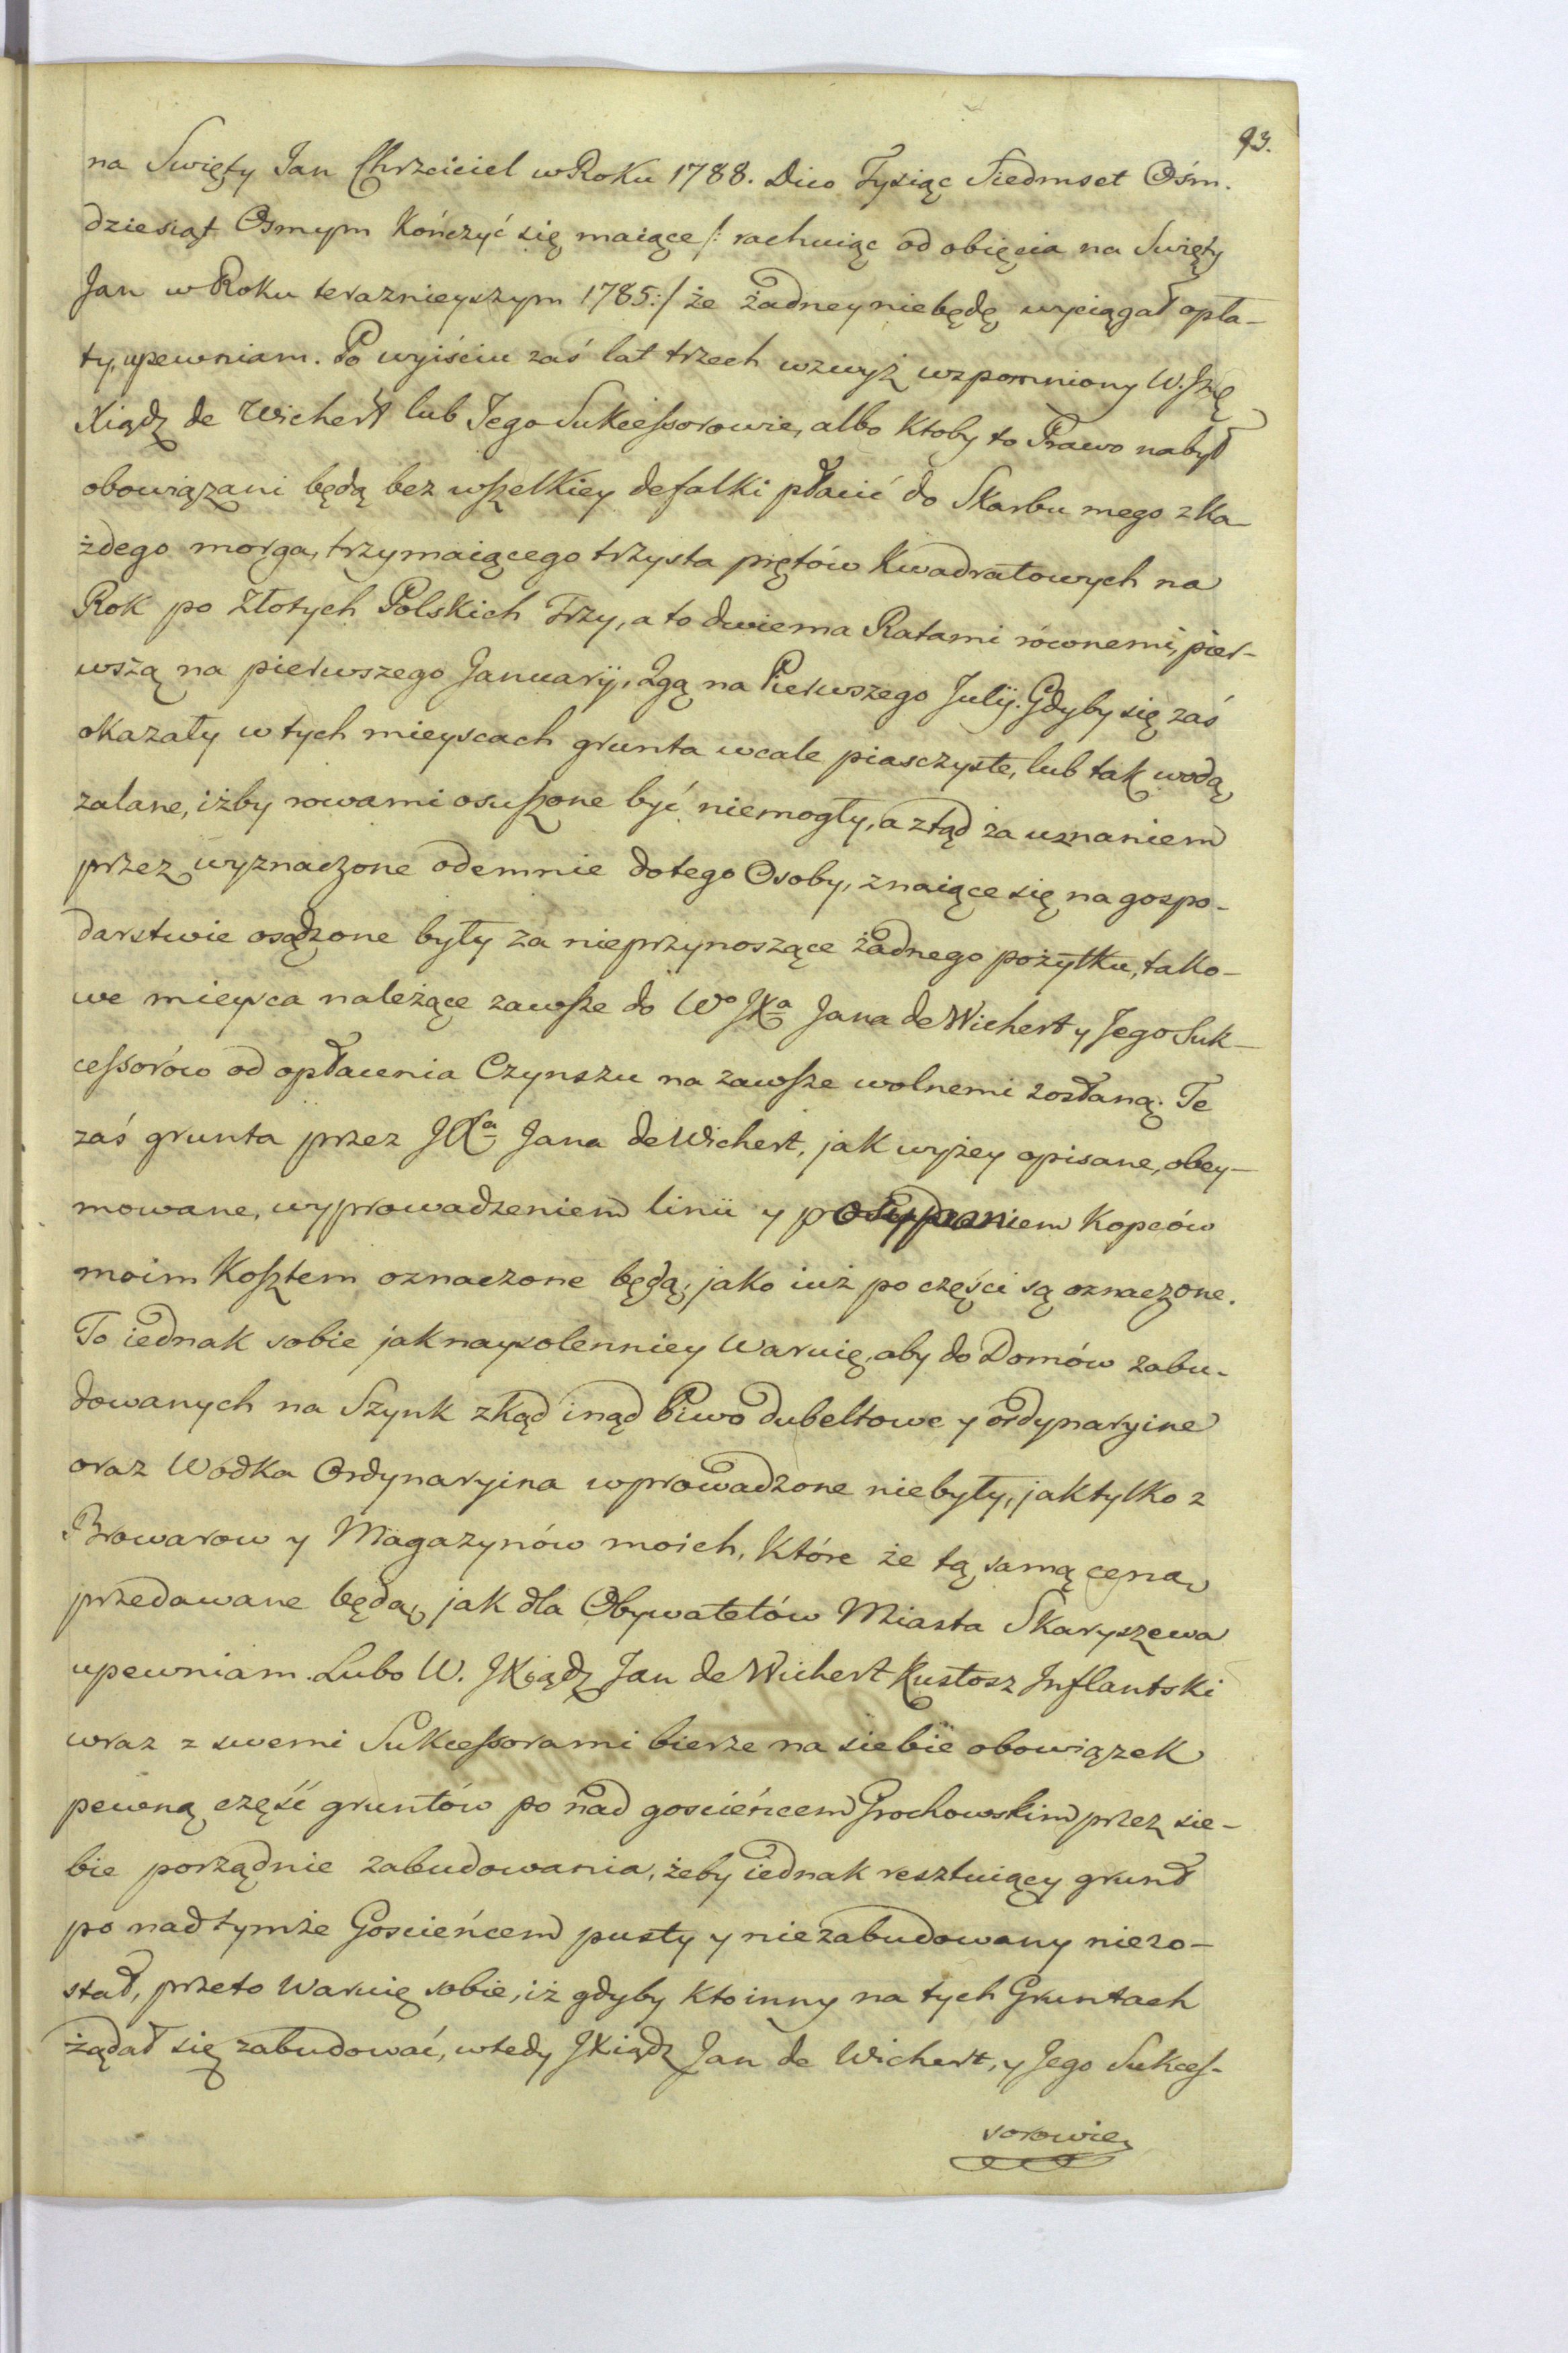 93.
na Swięty Jan Chrzciciel w Roku 1788. Dico Tysiąc Siedmset Ośm.
dziesiąt Osmym kończyć się maiące /: rachuiąc od obięcia na Swięty
Jan w Roku teraznieyszym 1785 :/ że żadney niebędę wyciągał opła-
ty, upewniam. Po wyiściu zaś lat trzech wzwyż wzpomniony W. Jmę
Xiądz de Wichert lub Jego Sukcessorowie, albo ktoby to Prawo nabył
obowiązani będą bez wszelkiey defalki płacić do Skarbu mego z ka-
żdego morga, trzymaiącego trzysta prętów kwadratowych na
Rok po Złotych Polskich Trzy, a to dwiema Ratami równemi, pier-
wszą na pierwszego Januarÿ, 2gą na Pierwszego Julÿ. Gdyby się zaś
okazały w tych mieyscach grunta wcale piasczyste, lub tak wodą
zalane, iżby rowami osuszone być niemogły, a ztąd za uznaniem
przez wyznaczone odemnie do tego Osoby, znaiące się na gospo-
darstwie osądzone były za nieprzynoszące żadnego pożytku, tako-
we mieysca należące zawsze do Wo JXa Jana de Wichert y Jego Suk-
cessorów od opłacenia Czynszu na zawsze wolnemi zostaną. Te
zaś grunta przez JXa Jana de Wichert, jak wyżey opisane, obey-
mowane, wyprowadzeniem linii y posypaniem Kopców
moim Kosztem oznaczone będą, jako iuż po części są oznaczone.
To iednak sobie jaknaysolenniey waruię, aby do Domów zabu-
dowanych na Szynk zkąd inąd Piwo dubeltowe y ordynaryine
oraz Wodka Ordynaryina wprowadzone niebyły, jak tylko z
Browarow y Magazynów moich, które że tą samą ceną
przedawane będą, jak dla Obywatelów Miasta Skaryszewa
upewniam. Lubo W. JXiądz Jan de Wichert Kustosz Inflantski
wraz z swemi Sukcessorami bierze na siebie obowiązek
pewną część gruntów po nad gościńcem Grochowskim przez sie-
bie porządnie zabudowania, żeby iednak resztuiący grunt
po nad tymże Gościeńcem pusty y niezabudowany niezo-
stał, przeto Waruię sobie, iż gdyby kto inny na tych Gruntach
żądał się zabudować, wtedy JXiądz Jan de Wichert, y Jego Sukces-
sorowie